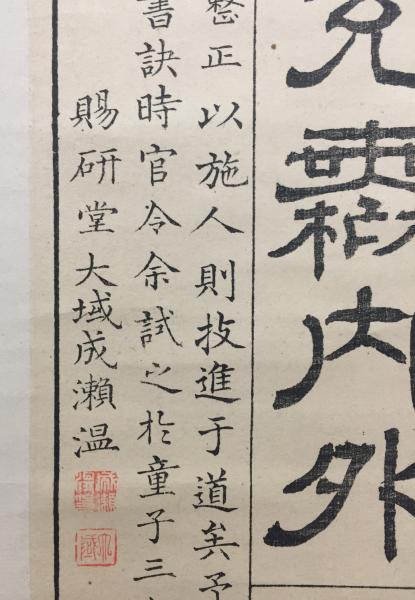 無内外
整正以施人則技進于道矣予
書訣時官令余試之於童子三
賜研堂大域成瀨温